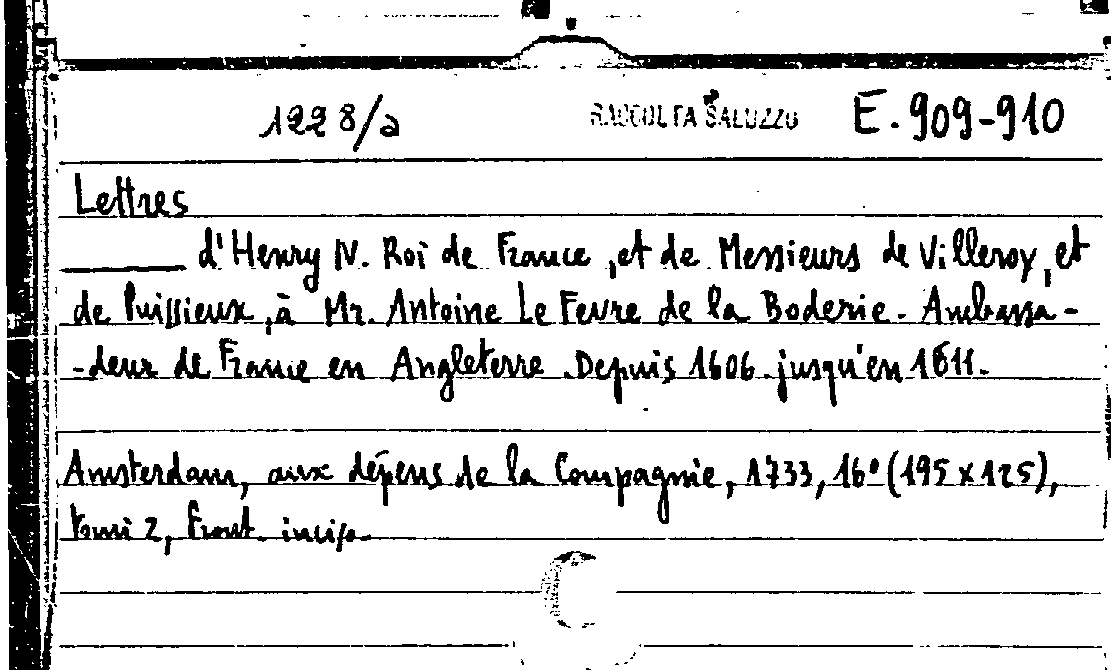 1228/a RACCOLTA SALUZZO E. 909-910
Lettres
d'Henry IV. Roi de France, et de Messieurs de Villeroy, et
de Puissieux, à Mr. Antoine Le Fevre de la Boderie. Ambassa-
-deur de France en Angleterre. Depuis 1606. jusqu'en 1611.
Amsterdam, aux dépens de la Compagnie, 1733, 16° (195 x 125),
tomi 2, front. incis.